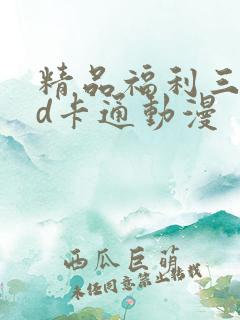 精品福利三
d卡通動漫
西瓜巨萌
未经同意禁止转载